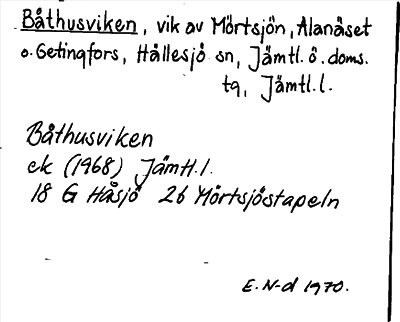 Båthusviken, vik av Mörtsjön, Alanäset
o. Getingfors, Hållesjö sn, Jämtl. ö. doms.
tg, Jämtl. l.
Båthusviken
ek (1968) Jämtl. l.
18 G Håsjö 26 Mörtsjöstapeln
E. N-d 1970.